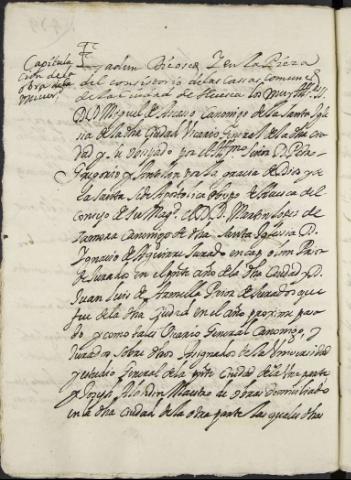 Capitula
cion de la
obra de la
Et adem Die osce, Y en la Pieza
del consistorio de las Cassas comunes
de la Ciudad de Huesca los muy Ill.es SS.
D. D. Miguel de Canonigo de la Santa Igle
sia de la dha Ciudad Vicario General de la dha ciu
dad y su Obispado por el Señor D. Pedro
Gregorio y Antillon por la gracia de Dios y de
la Santa Sede Apostolica Obispo de Huesca del
Consejo de su Mag.d el D. D. Martin Lopes de
Canonigo de dha Santa Iglesia D.
Ignacio de Aguirre Jurado en cap o Com Prior
de Jurados en el pnte año de la dha Ciudad y D.
Juan Luis de Prior de Jurados que
fue de la dha Ciudad en el año proxime passa
do y como tales Vicario General Canonigo, y
Jurados sobre dhos Asignados de la Universidad
y estudio General de la pnte Ciudad de la Una parte
y Maestro de obras Domiciliado
en la dha Ciudad de la otra parte las quales dhas